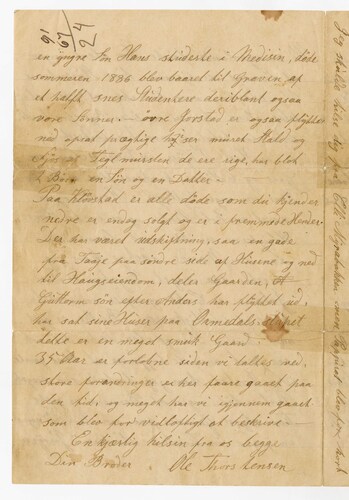 91
67
24
en yngre Søn Hans studerte i Medisin, døde
sommeren 1886 blev baaret til Graven af
et halft snes Studentere deriblant ogsaa
vore Sønner. — øvre forstad er ogsaa flyttet
ned opsat prægtige hus er muret Stald og
Fjøs af Teglmursten de ere rige, har blot
2 Børn en Søn og en Datter. —
Paa Klonstad er alle døde som du kjender
nedre er endog solgt og er i fremmede Hender
Der har været udskiftning, saa en gade
fra Taaje paa søndre side af Husene og ned
til Haugeeiendom, deler Gaarden,
søn efter Anders har flyttet ud,
har sat sine Huser paa Ormedals
dette er en meget smuk Gaard.
35 Aar er forløbne siden vi taltes ved,
store forandringer er her foregaaet paa
den tid, og meget har vi igjennem gaaet
som blev for vidløftigt at beskrive. —
En kjærlig hilsen fra os begge
Din Broder. Ole Thorstensen
Jeg skulde hilse dig fra